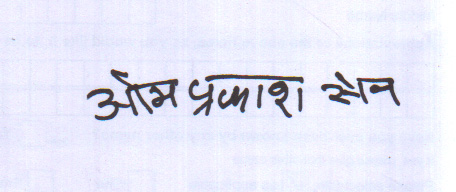 ओम प्रकाश सेन